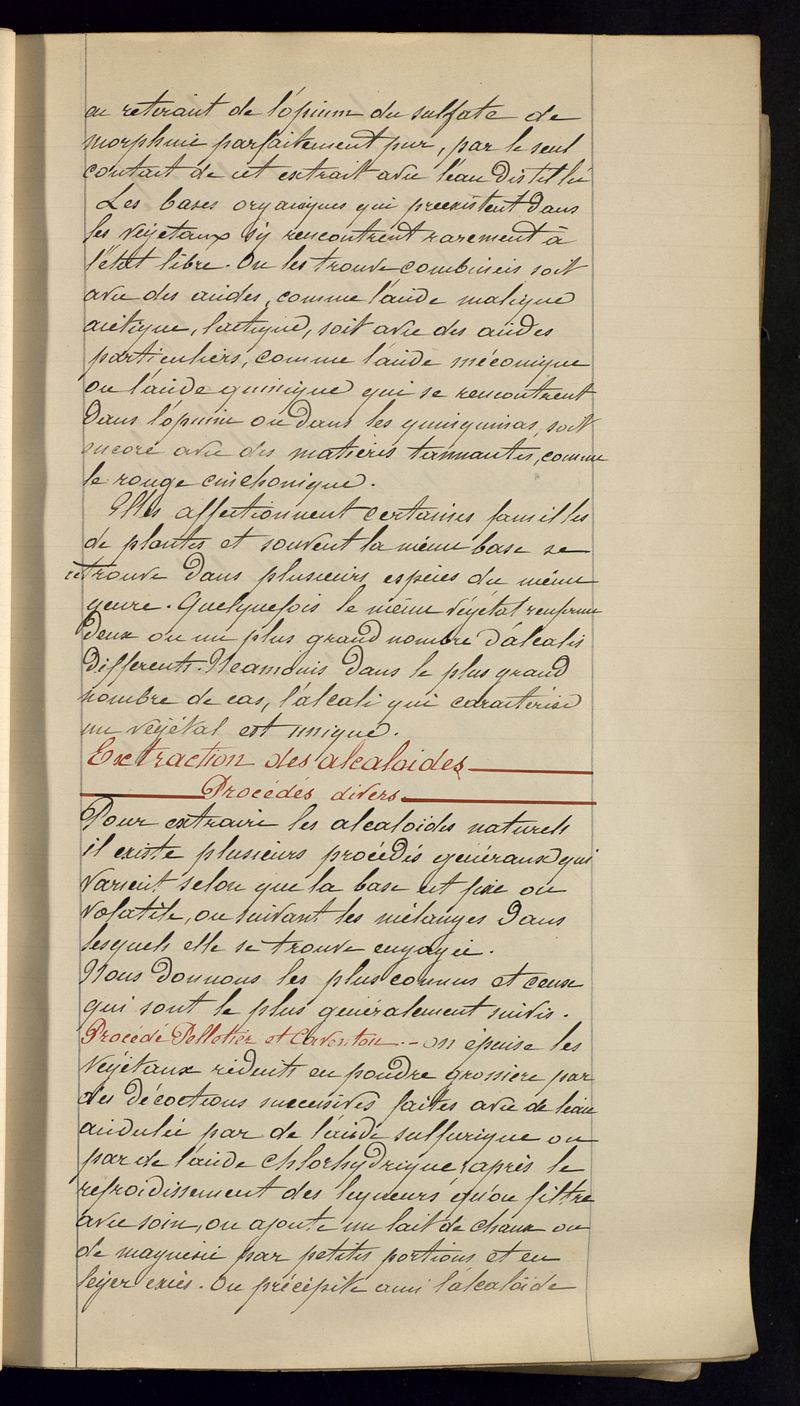 en retirant de l'opium du sulfate de
morphine parfaitement pur, par le seul
contact de cet extrait avec l'eau distillée
Les bases organiques qui préexistent dans
les végétaux s'y rencontrent rarement à
l'état libre. On les trouve combinées soit
avec des acides, comme l'acide malique
acétique, lactique, soit avec des acides
particuliers, comme l'acide méconique
ou l'acide quinique qui se rencontrent
dans l'opium ou dans les quinquinas, soit
encore avec des matières tannantes, comme
le rouge cinchonique.
Elles affectionnent certaines familles
de plantes et souvent la même base se
retrouve dans plusieurs espèces du même
genre. Quelquefois le même végétal renferme
deux ou un plus grand nombre d'alcalis
différents. Néamonis dans le plus grand
nombre de cas, l'alcali qui caractérise
un végétal est unique.
Extraction des alcaloides
Procédés divers
Pour extraire les alcaloïdes naturels
il existe plusieurs procédés généraux qui
varient selon que la base est fixe ou
volatile, ou suivant les mélanges dans
lesquels elle se trouve engagée.
Nous donnons les plus connus et ceux
qui sont le plus généralement suivis.
Procédé Pelletier et Caventon. - on épuise les
végétaux réduits en poudre grossière par
des décoctions successives faites avec de l'eau
acidulée par de l'acide sulfurique ou
par de l'acide chlorhydrique, après le
refroidissement des liqueurs qu'on filtre
avec soin, on ajoute un lait de chaux ou
de magnésie par petites portions et en
léger excès. On précipite ainsi l'alcaloïde